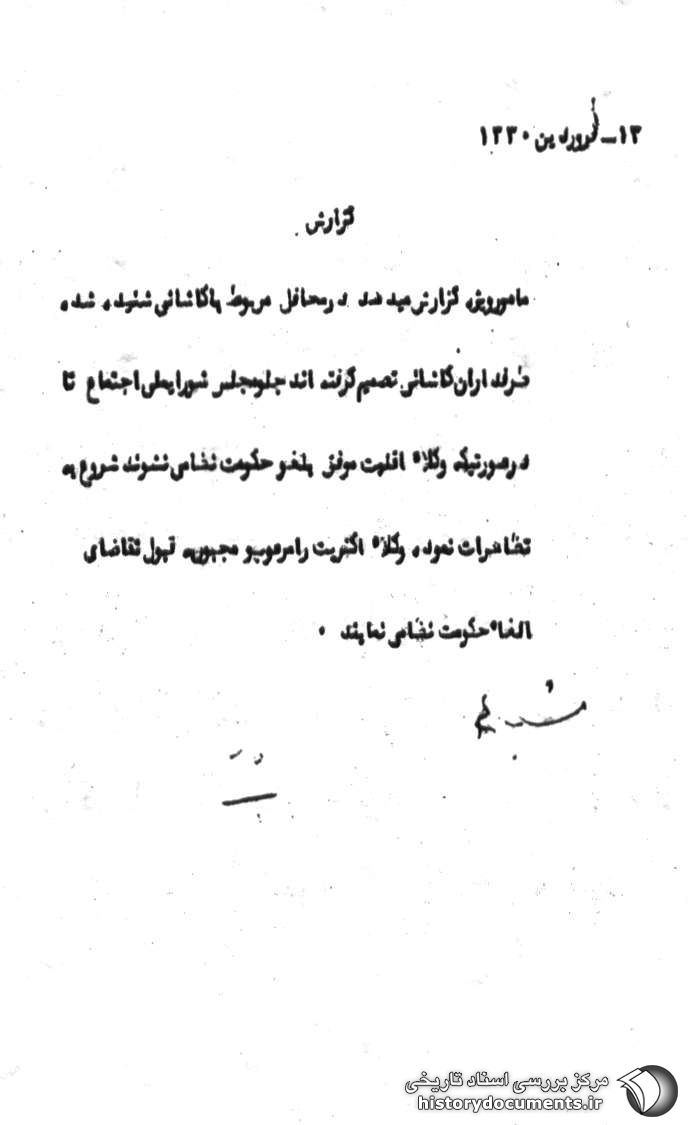 ۱۳ـ فروردین ۱۳۳۰
گزارش
مامورویژه گزارش میدهد درمحافل مربوط باکاشانی شنیده شده
طرفداران کاشانی تصمیم گرفته اند جلومجلس شورایملی اجتماع تا
درصورتیکه وکلاء اقلیت موفق بلغو حکومت نظامی نشوند شروع به
تظاهرات نموده وکلاء اکثریت رامرعوب و مجبوربه قبول تقاضای
الغاء حکومت نظامی نمایند .
مرکز بررسی اسناد تاریخی
historydocuments.ir